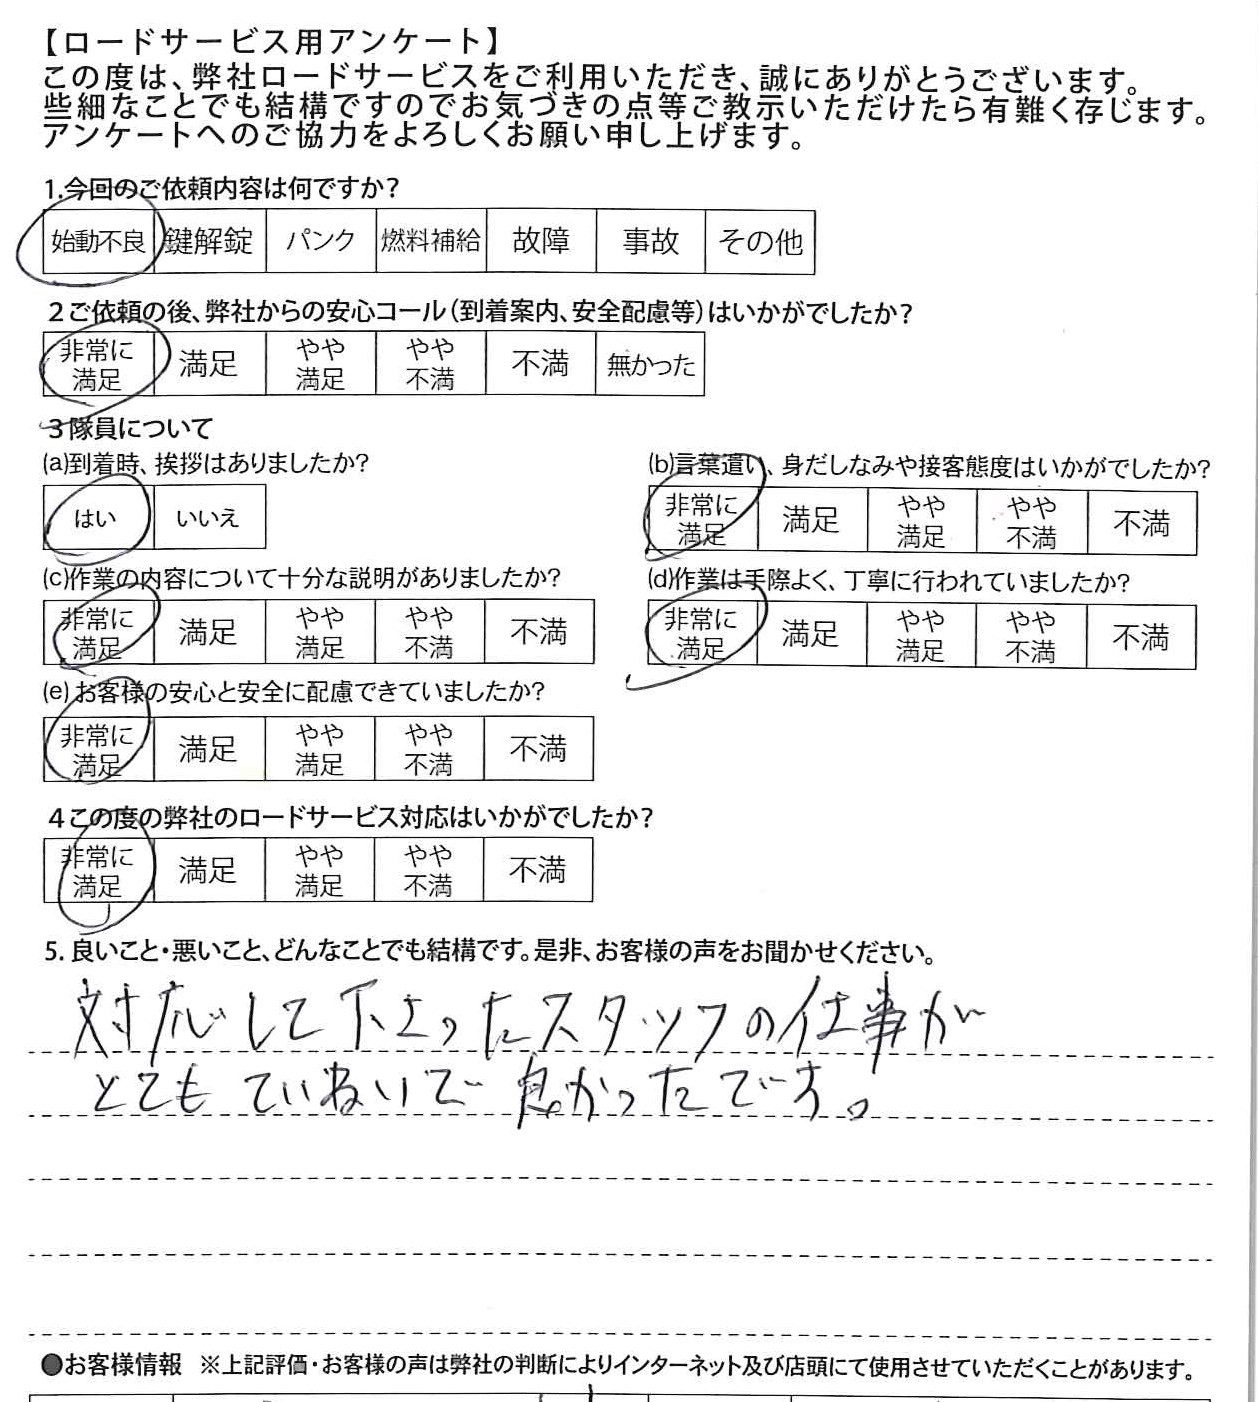 【ロードサービス用アンケート】
この度は、弊社ロードサービスをご利用いただき、誠にありがとうございます。
些細なことでも結構ですのでお気づきの点等ご教示いただけたら有難く存じます。
アンケートへのご協力をよろしくお願い申し上げます。
1.今回のご依頼内容は何ですか?
始動不良 鍵解錠 パンク 燃料補給 故障 事故 その他
2ご依頼の後、弊社からの安心コール(到着案内、安全配慮等)はいかがでしたか?
非常に満足 満足 やや満足 やや不満 不満 無かった
3隊員について
(a)到着時、挨拶はありましたか?
はい いいえ
(b)言葉遣い、身だしなみや接客態度はいかがでしたか?
非常に満足 満足 やや満足 やや不満 不満
(c)作業の内容について十分な説明がありましたか?
非常に満足 満足 やや満足 やや不満 不満
(d)作業は手際よく、丁寧に行われていましたか?
非常に満足 満足 やや満足 やや不満 不満
(e)お客様の安心と安全に配慮できていましたか?
非常に満足 満足 やや満足 やや不満 不満
4この度の弊社のロードサービス対応はいかがでしたか?
非常に満足 満足 やや満足 やや不満 不満
5. 良いこと・悪いこと、どんなことでも結構です。是非、お客様の声をお聞かせください。
対応して下さったスタッフの仕事が
とてもていねいで良かったです。
●お客様情報 ※上記評価・お客様の声は弊社の判断によりインターネット及び店頭にて使用させていただくことがあります。